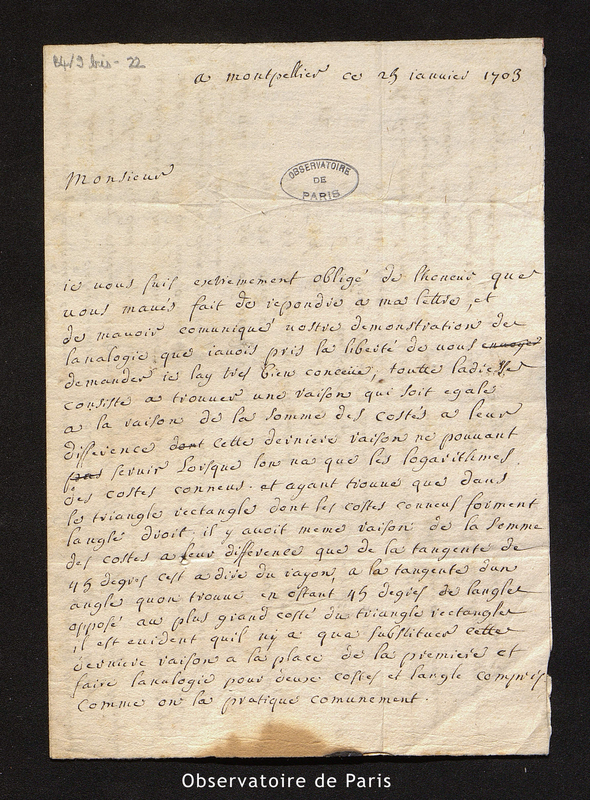 B4/9 bis - 22
a montpellier ce 25 ianvier 1703
OBSERVATOIRE
DE
PARIS
Monsieur
ie vous suis extremement obligé de lhoneur que
vous mavés fait de repondre a ma lettre, et
de mavoir comuniqué vostre demonstration de
lanalogie que iavois pris la liberté de vous envoyer
demander ie lay tres bien conceue, toutte ladresse
consiste a trouver une raison qui soit egale
a la raison de la somme des costés a leur
difference dont cette derniere raison ne pouvant
pas servir lorsque lon na que les logarithmes
des costes connus. et ayant trouvé que dans
le triangle rectangle dont les costes conneus forment
langle droit, il y avoit meme raison de la somme
des costes a leur difference que de la tangente de
45 degres cest a dire du rayon, a la tangente dun
angle quon trouve en ostant 45 degres de langle
opposé au plus grand costé du triangle rectangle
il est evident quil ny a qua substituer cette
derniere raison a la place de la premiere et
faire lanalogie pour deux costes et langle compris
comme on la pratique comunement.
Observatoire de Paris